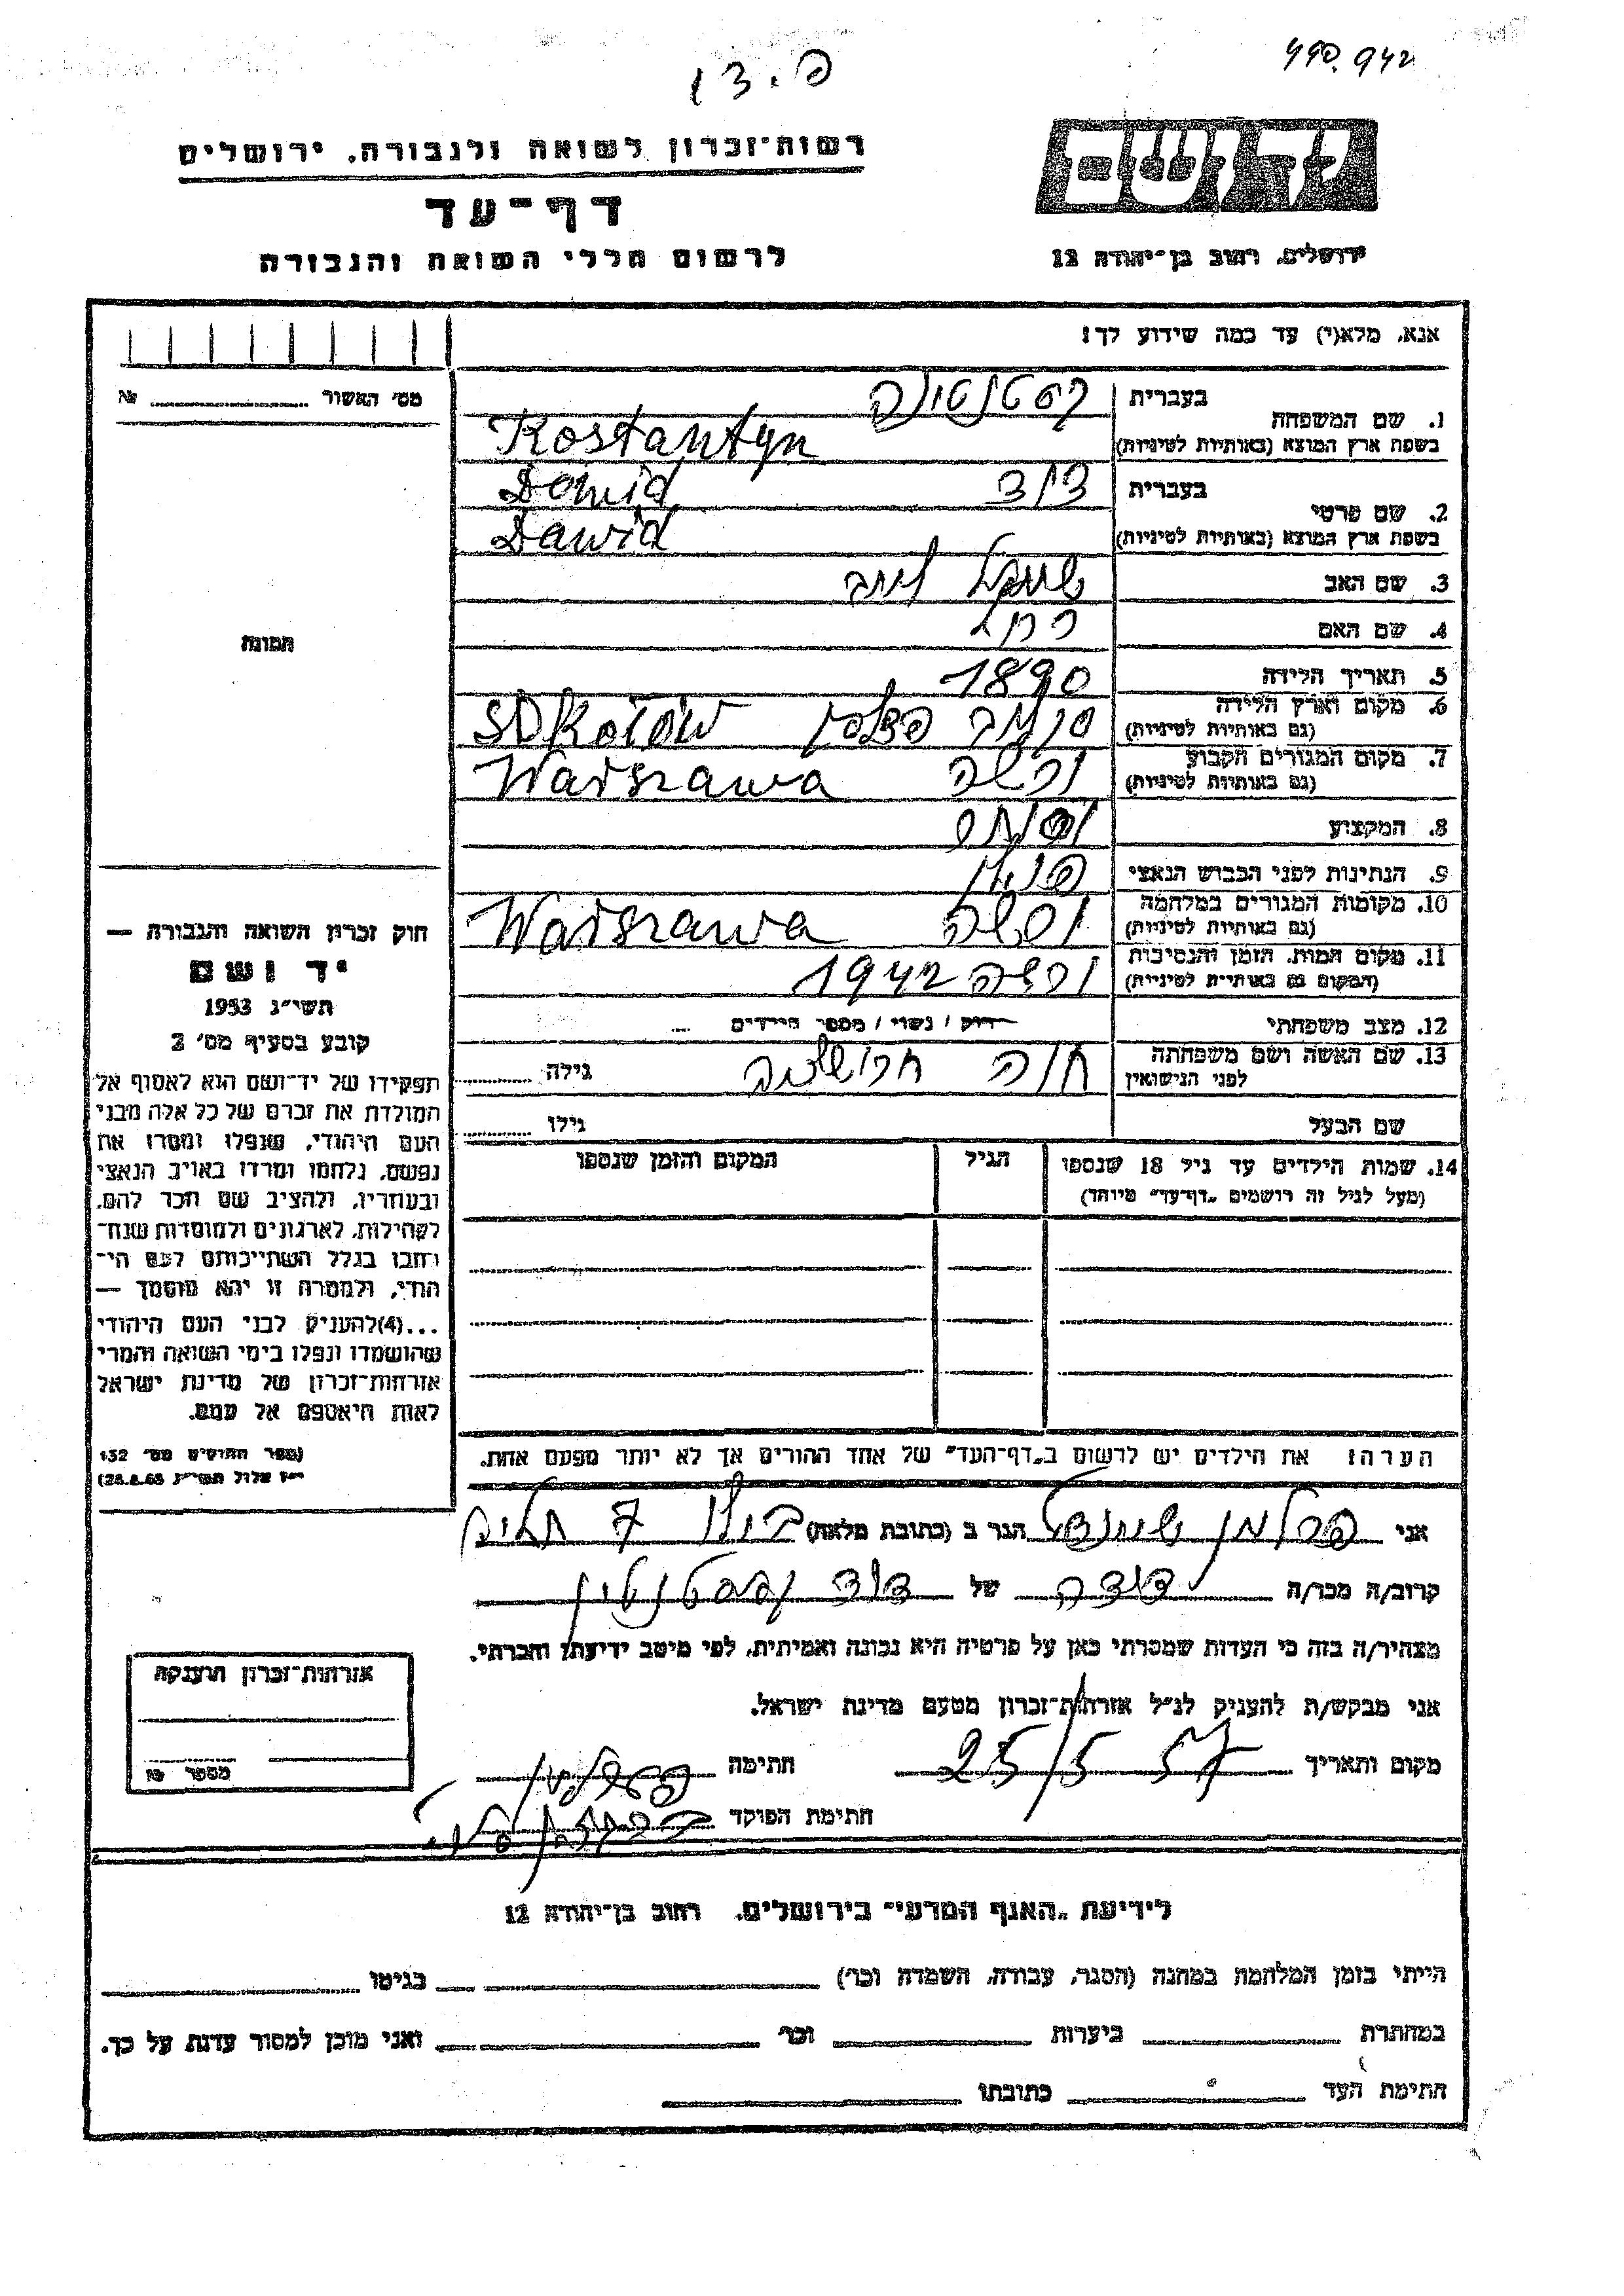 490.942
רשות־זכרון לשואה ולגבורה, ירושלים
דף־עד
לרשום חללי השואה והגבורה
יד ושם
ירושלים, רחוב בן־יהודה 12
אנא, מלא(י) עד כמה שידוע לך:
מס' האשור №
1. שם המשפחה בעברית
בשפת ארץ המוצא (באותיות לטיניות) Kostantyn
2. שם פרטי בעברית דוד Dawid
בשפת ארץ המוצא (באותיות לטיניות) Dawid
3. שם האב
4. שם האם
5. תאריך הלידה 1890
6. מקום וארץ הלידה
(גם באותיות לטיניות) Sokołów
7. מקום המגורים הקבוע ורשה
(גם באותיות לטיניות) Warszawa
8. המקצוע
9. הנתינות לפני הכבוש הנאצי
10. מקומות המגורים במלחמה ורשה
(גם באותיות לטיניות) Warszawa
11. מקום המות, הזמן והנסיבות ורשה 1942
(המקום גם באותיות לטיניות)
12. מצב משפחתי רווק / נשוי / מספר הילדים
13. שם האשה ושם משפחתה חוה גילה
לפני הנישואין
שם הבעל גילו
14. שמות הילדים עד גיל 18 שנספו הגיל המקום והזמן שנספו
(מעל לגיל זה רושמים „דף־עד" מיוחד)
תמונה
חוק זכרון השואה והגבורה —
יד ושם
תשי"ג 1953
קובע בסעיף מס' 2
תפקידו של יד־ושם הוא לאסוף אל
המולדת את זכרם של כל אלה מבני
העם היהודי, שנפלו ומסרו את
נפשם, נלחמו ומרדו באויב הנאצי
ובעוזריו, ולהציב שם וזכר להם,
לקהילות, לארגונים ולמוסדות שנח־
רבו בגלל השתייכותם לעם הי־
הודי, ולמטרה זו יהא מוסמך —
...(4)להעניק לבני העם היהודי
שהושמדו ונפלו בימי השואה והמרי
אזרחות־זכרון של מדינת ישראל
לאות היאספם אל עמם.
(ספר החוקים מס' 132
הערה: את הילדים יש לרשום ב„דף־העד" של אחד ההורים אך לא יותר מפעם אחת.
אני הגר ב (כתובת מלאה)
קרוב/ה מכר/ה של דוד
מצהיר/ה בזה כי העדות שמסרתי כאן על פרטיה היא נכונה ואמיתית, לפי מיטב ידיעתי והכרתי.
אני מבקש/ת להעניק לנ"ל אזרחות־זכרון מטעם מדינת ישראל.
מקום ותאריך 25/5 57 חתימה
חתימת הפוקד
אזרחות־זכרון הוענקה
מספר
לידיעת „האגף המדעי" בירושלים, רחוב בן־יהודה 12
הייתי בזמן המלחמה במחנה (הסגר, עבודה, השמדה וכו') בגיטו
במחתרת ביערות וכו' ואני מוכן למסור עדות על כך.
חתימת העד כתובתו